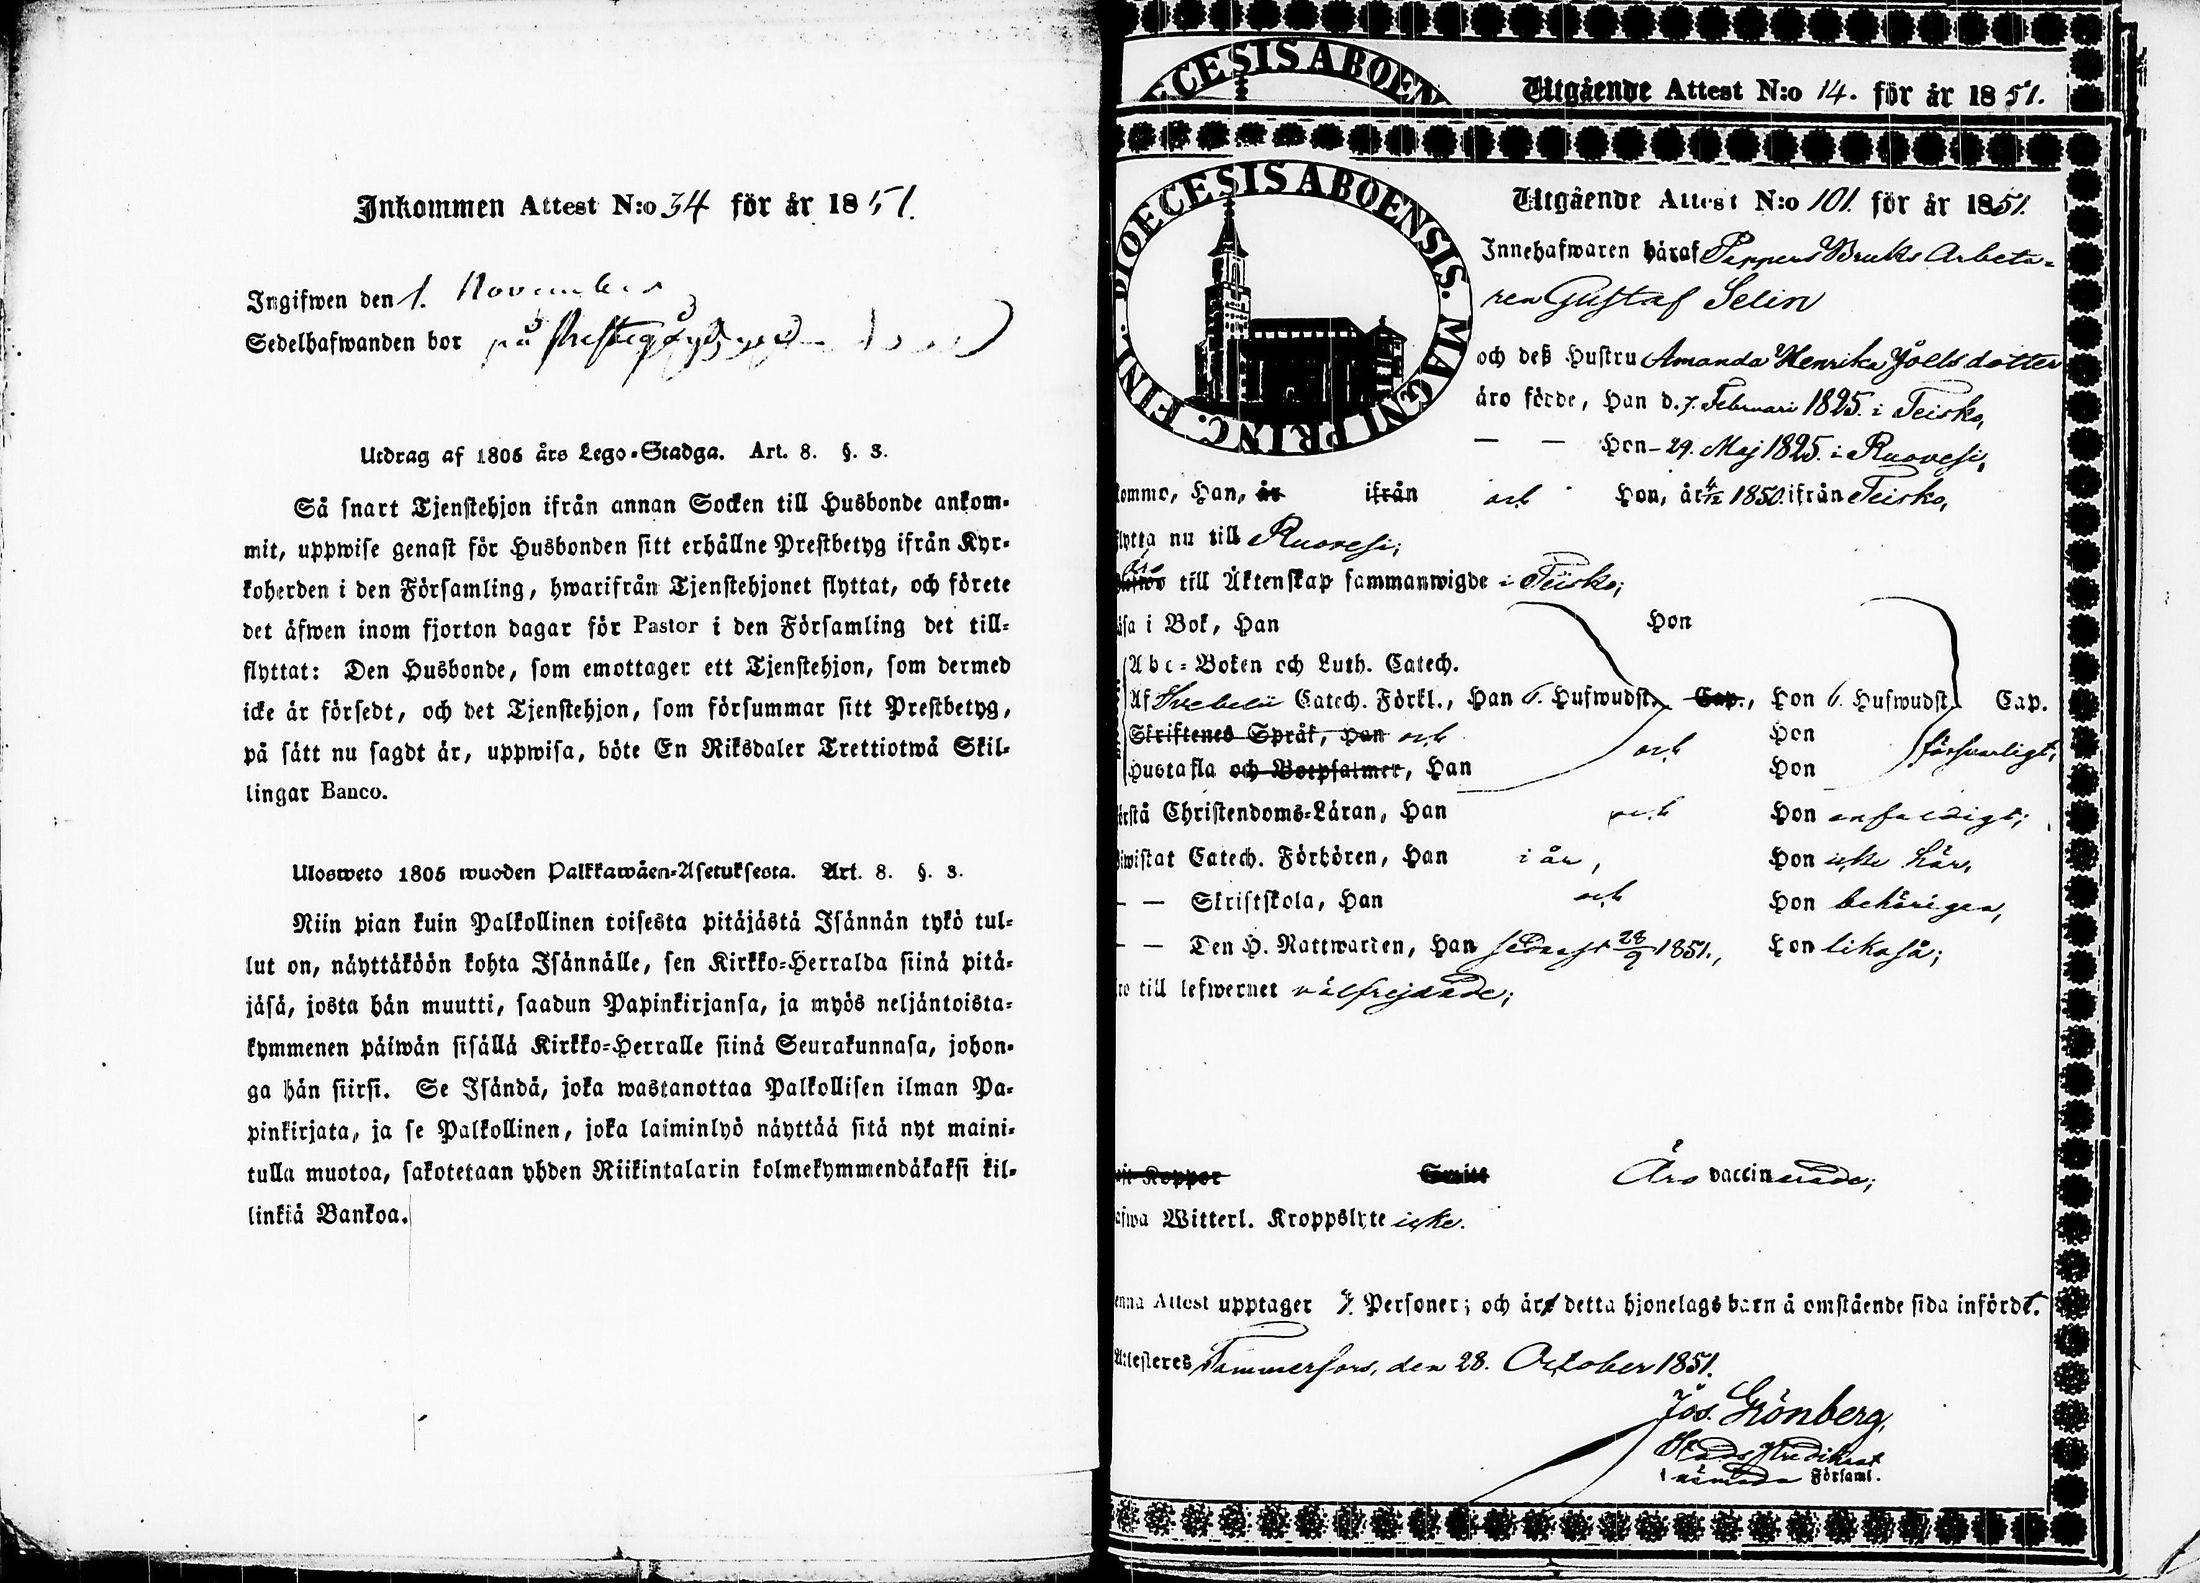 Inkommen Attest N:o 34 för år 1851.
Ingifwen den 1. November
Sedelhafwanden bor på
Utdrag af 1805 års Lego-Stadga. Art. 8. §. 3.
Så snart Tjenstehjon ifrån annan Socken till Husbonde ankom-
mit, uppwise genast för Husbonden sitt erhållne Prestbetyg ifrån Kyr-
koherden i den Församling, hwarifrån Tjenstehjonet flyttat, och förete
det äfwen inom fjorton dagar för Pastor i den Församling det till-
flyttat: Den Husbonde, som emottager ett Tjenstehjon, som dermed
icke är försedt, och det Tjenstehjon, som försummar sitt Prestbetyg,
på sätt nu sagdt är, uppwisa, böte En Riksdaler Trettiotwå Skil-
lingar Banco.
Ulosweto 1805 wuoden Palkkawäen-Asetuksesta. Art. 8. §. 3.
Niin pian kuin Palkollinen toisesta pitäjästä Isännän tykö tul-
lut on, näyttäköön kohta Isännälle, sen Kirkko-Herralda siinä pitä-
jäsä, josta hän muutti, saadun Papinkirjansa, ja myös neljäntoista-
kymmenen päiwän sisällä Kirkko-Herralle siinä Seurakunnasa, johon-
ga hän siirsi. Se Isändä, joka wastanottaa Palkollisen ilman Pa-
pinkirjata, ja se Palkollinen, joka laiminlyö näyttää sitä nyt maini-
tulla muotoa, sakotetaan yhden Riikintalarin kolmekymmendäkaksi kil-
linkiä Bankoa.
CESIS ABOEN
Utgående Attest N:o 14. för år 1851.
DIOECESIS ABOENSIS. MAGNI PRINC. FINL.
Utgående Attest N:o 101. för år 1851.
Innehafwaren häraf Pappers Bruks Arbeta-
ren Gustaf Selin
och deß Hustru Amanda Henrika Joelsdotter
äro födde, Han d. 7. Februari 1825. i Teisko,
— — Hon - 29. Maj 1825. i Ruovesi,
komme, Han, är ifrån och Hon, är 4/12 1850. ifrån Teisko,
flytta nu till Ruovesi;
äro till Äktenskap sammanwigde i Teisko;
läsa i Bok, Han Hon
Abc-Boken och Luth. Catech.
Af Svebelii Catech. Förkl., Han 6. Hufwudst. Cap., Hon 6. Hufwudst. Cap.
Skriftenes Språk, Han och Hon
Hustafla och Botpsalmer, Han och Hon försvarligt;
förstå Christendoms-Läran, Han och Hon enfaldigt;
biwistat Catech. Förhören, Han i år, Hon icke här,
— — Skriftskola, Han och Hon behörigen,
— — Den H. Nattwarden, Han sednast 28/9 1851., Hon likaså;
äro till lefwernet välfrejdade;
haft Koppor Smitt Äro vaccinerade;
hafwa Witterl. Kroppslyte icke.
Denna Attest upptager Personer; och är detta hjonelags barn å omstående sida infördt.
Attesteres Tammerfors, den 28. October 1851.
Jos. Grönberg,
Stads Predikant
i nämnda Församl.